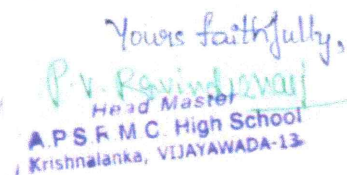 Yours faithfully,
P. V. Ravindranath
Head Master
A.P.S.R.M.C. High School
Krishnalanka, VIJAYAWADA-13